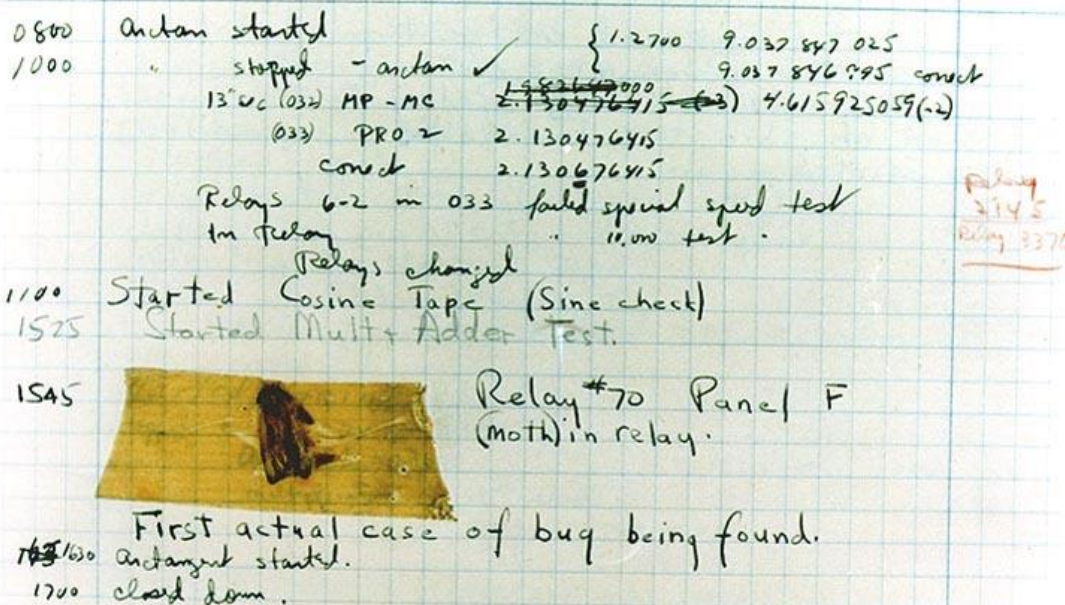 0800 antan started { 1.2700 9.037 847 025
1000 " stopped - antan ✓ 9.037 846 995 correct
13" uc (032) MP - MC 2.130476415 (-3) 4.615925059(-2)
(033) PRO 2 2.130476415
correct 2.130676415
Relays 6-2 in 033 failed special speed test
In Relay " 10.000 test .
Relays changed
Relay
2145
Relay 3370
1100 Started Cosine Tape (Sine check)
1525 Started Mult + Adder Test.
1545 Relay #70 Panel F
(moth) in relay.
First actual case of bug being found.
1630 antangent started.
1700 closed down.